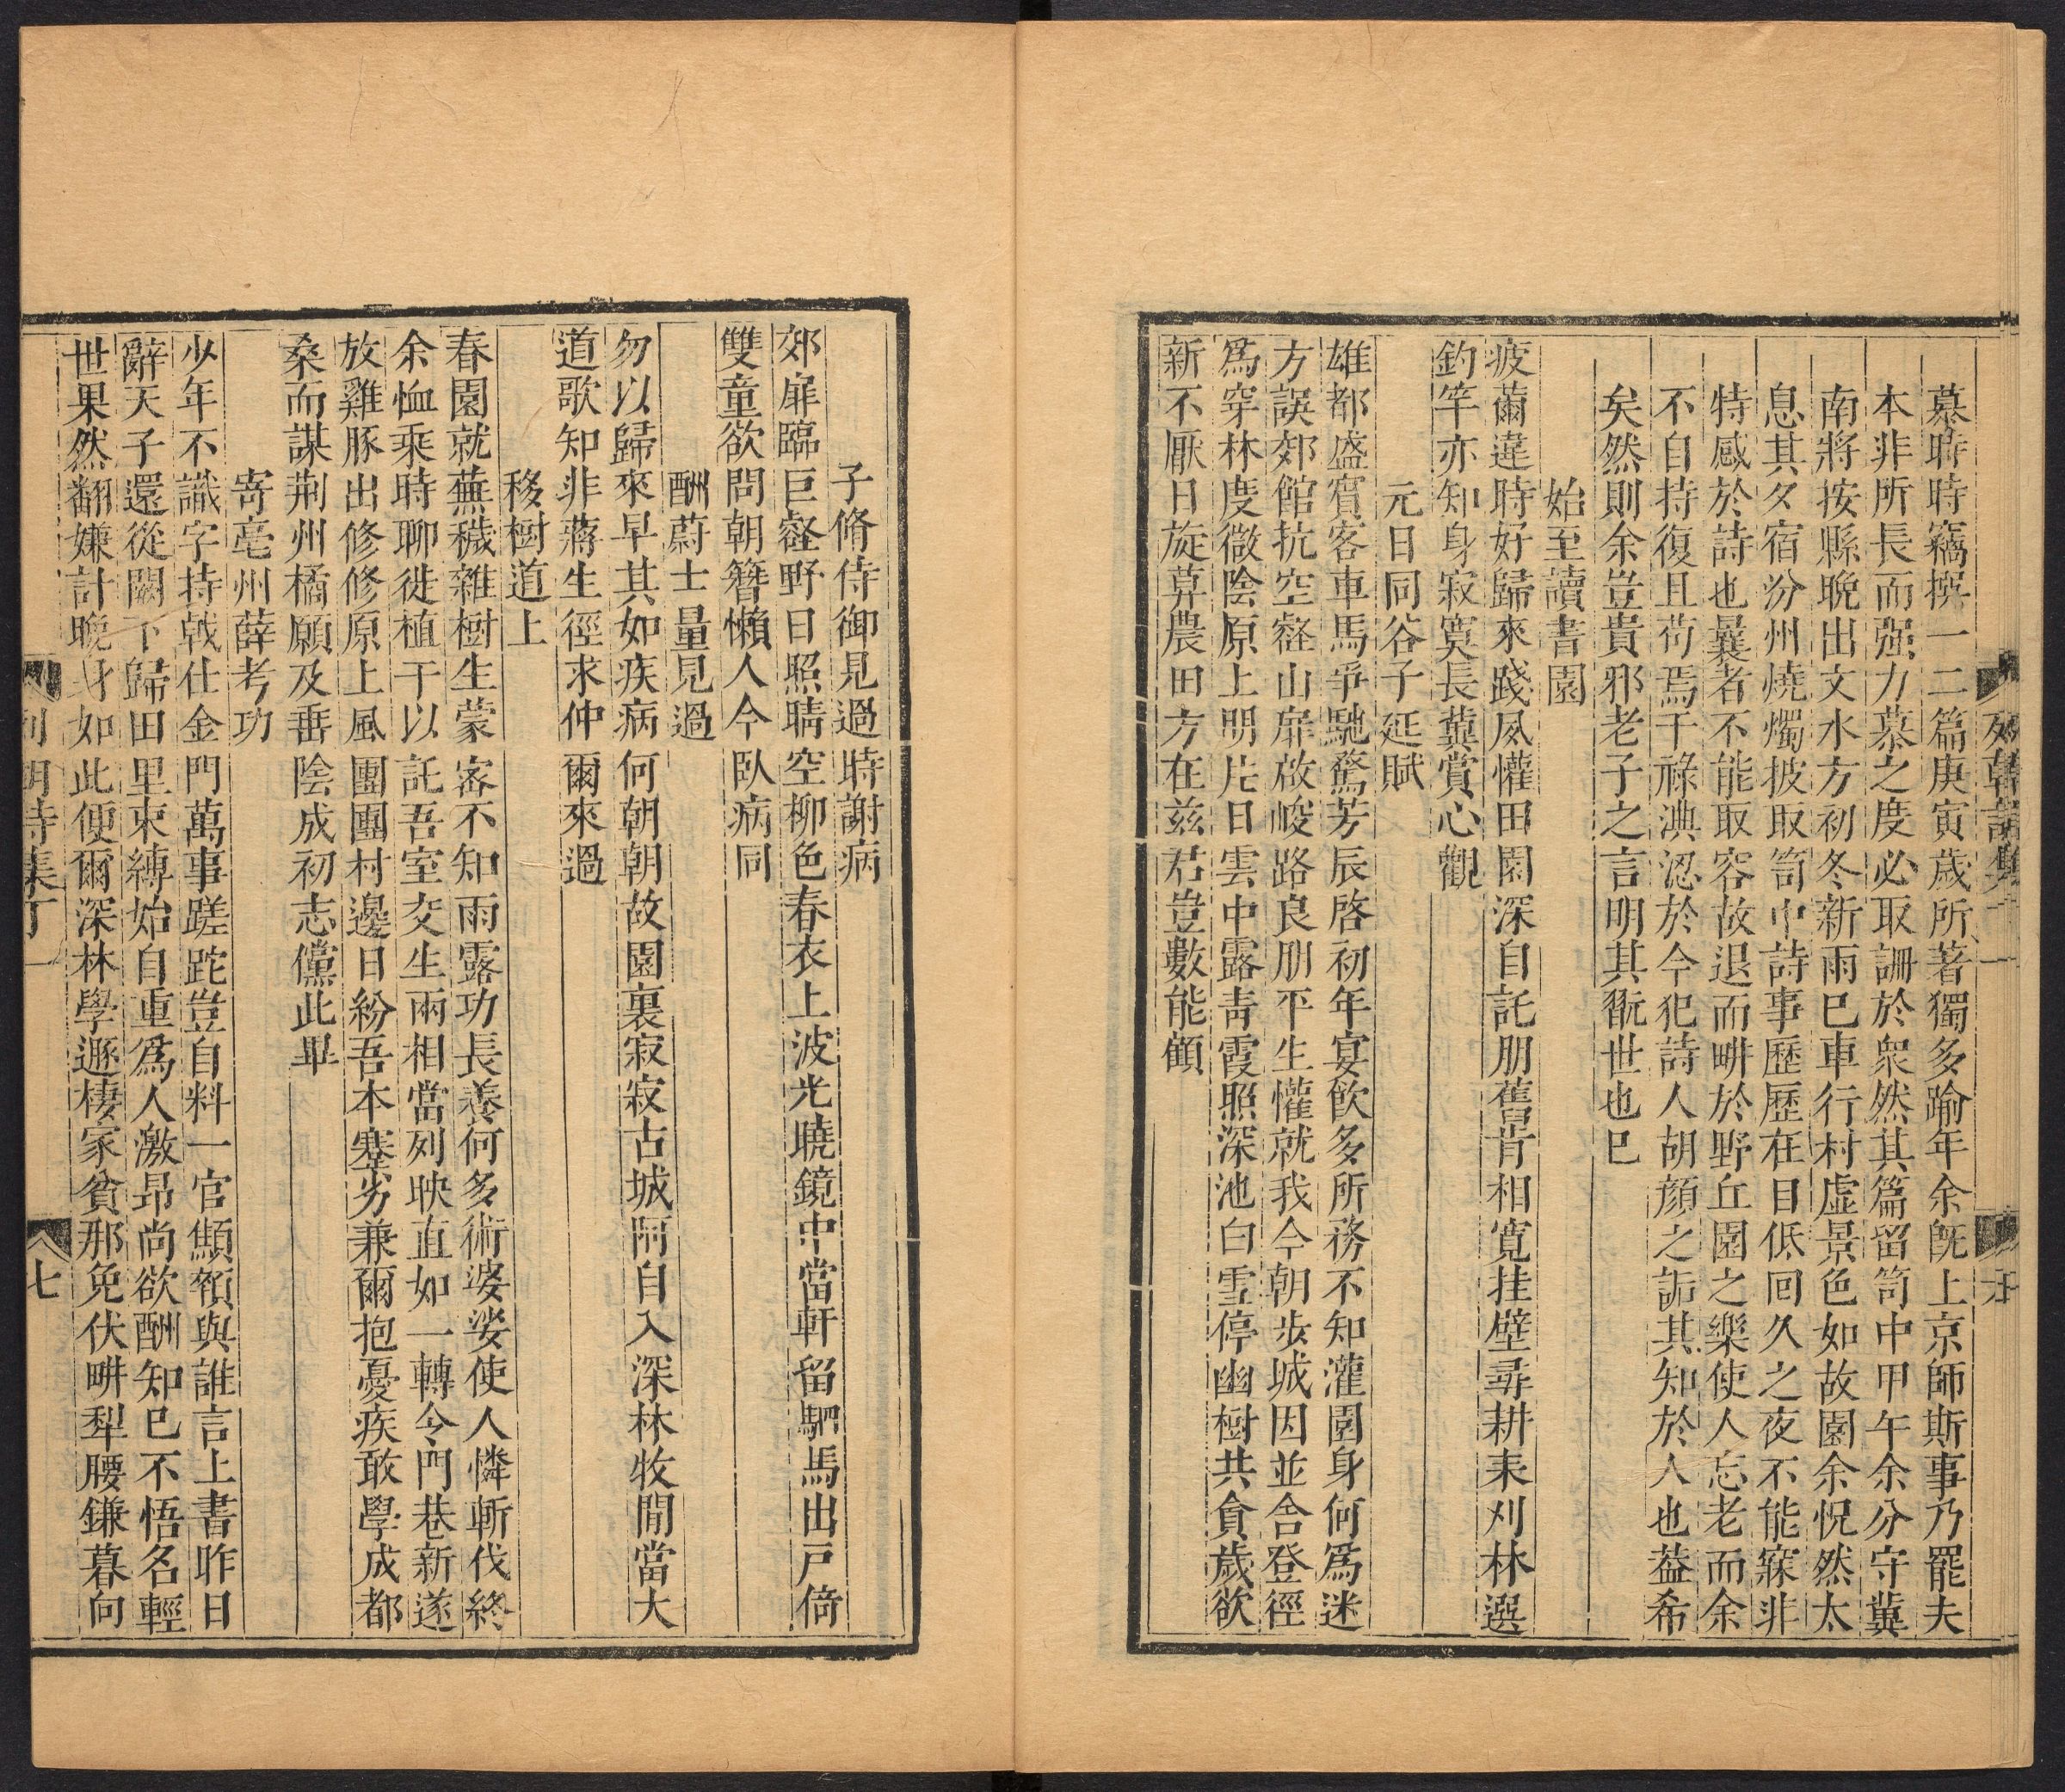 慕時時竊撰一二篇庚寅歲所著獨多踰年余旣上京師斯事乃罷夫
本非所長而強力慕之度必取訕於衆然其篇留笥中甲午余分守冀
南將按縣晚出文水方初冬新雨已車行村虛景色如故園余怳然太
息其夕宿汾州燒燭披取笥中詩事歷歷在目低回久之夜不能寐非
特感於詩也曩者不能取容故退而畊於野丘園之樂使人忘老而余
不自持復且苟焉干祿淟涊於今犯詩人胡顏之詬其知於人也益希
矣然則余豈貴邪老子之言明其翫世也已
始至讀書園
疲薾違時好歸來踐夙懽田園深自託朋舊肯相寬挂壁尋耕耒刈林選
釣竿亦知身寂寞長冀賞心觀
元日同谷子延賦
雄都盛賓客車馬爭馳騖芳辰啓初年宴飮多所務不知灌園身何爲迷
方誤郊館抗空壑山扉啟峻路良朋平生懽就我今朝步城因並舍登徑
爲穿林度微陰原上明片日雲中露靑霞照深池白雪停幽樹共貪歲欲
新不厭日旋莫農田方在兹君豈數能顧
列朝詩集丁十一
六
子脩侍御見過時謝病
郊扉臨巨壑野日照晴空柳色春衣上波光曉鏡中當軒留駟馬出戸倚
雙童欲問朝簪懶人今臥病同
酬蔚士量見過
勿以歸來早其如疾病何朝朝故園裏寂寂古城阿自入深林牧閒當大
道歌知非蔣生徑求仲爾來過
移樹道上
春園就蕪穢雜樹生蒙密不知雨露功長養何多術婆娑使人憐斬伐終
余恤乘時聊徙植干以託吾室交生兩相當列映直如一轉令門巷新遂
放雞豚出修修原上風團團村邊日紛吾本蹇劣兼爾抱憂疾敢學成都
桑而謀荊州橘願及垂陰成初志儻此畢
寄亳州薛考功
少年不識字持戟仕金門萬事蹉跎豈自料一官顦顇與誰言上書昨日
辭天子還從闕下歸田里束縛始自重爲人激昂尚欲酬知已不悟名輕
世果然翻嫌計晚身如此便爾深林學遯棲家貧那免伏畊犁腰鎌暮向
列朝詩集丁十一
七